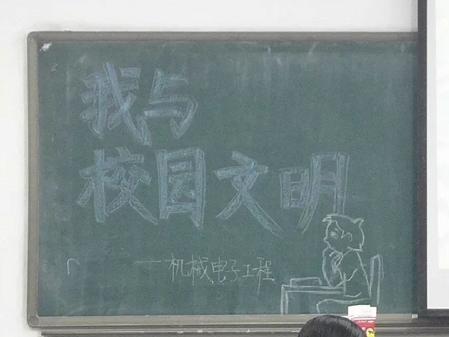 我与
校园文明
——机械电子工程